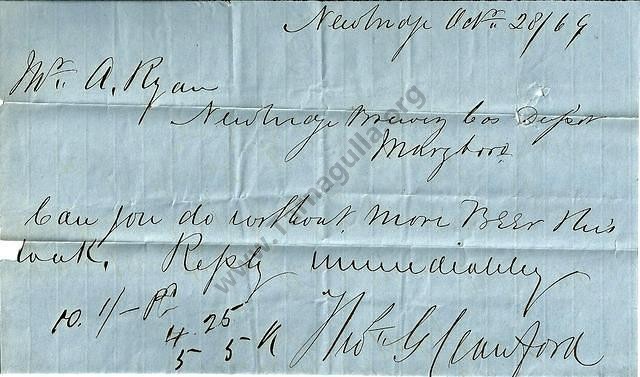 Newbridge Octr. 28/69
Mr. A. Ryan
Newbridge Brewery Cos Depot
Maryboro.
Can you do without more Beer this
week. Reply immediately
Thos. G Crawford
10. 1/-
4. 25
5 5 K
www.tarnagulla.org